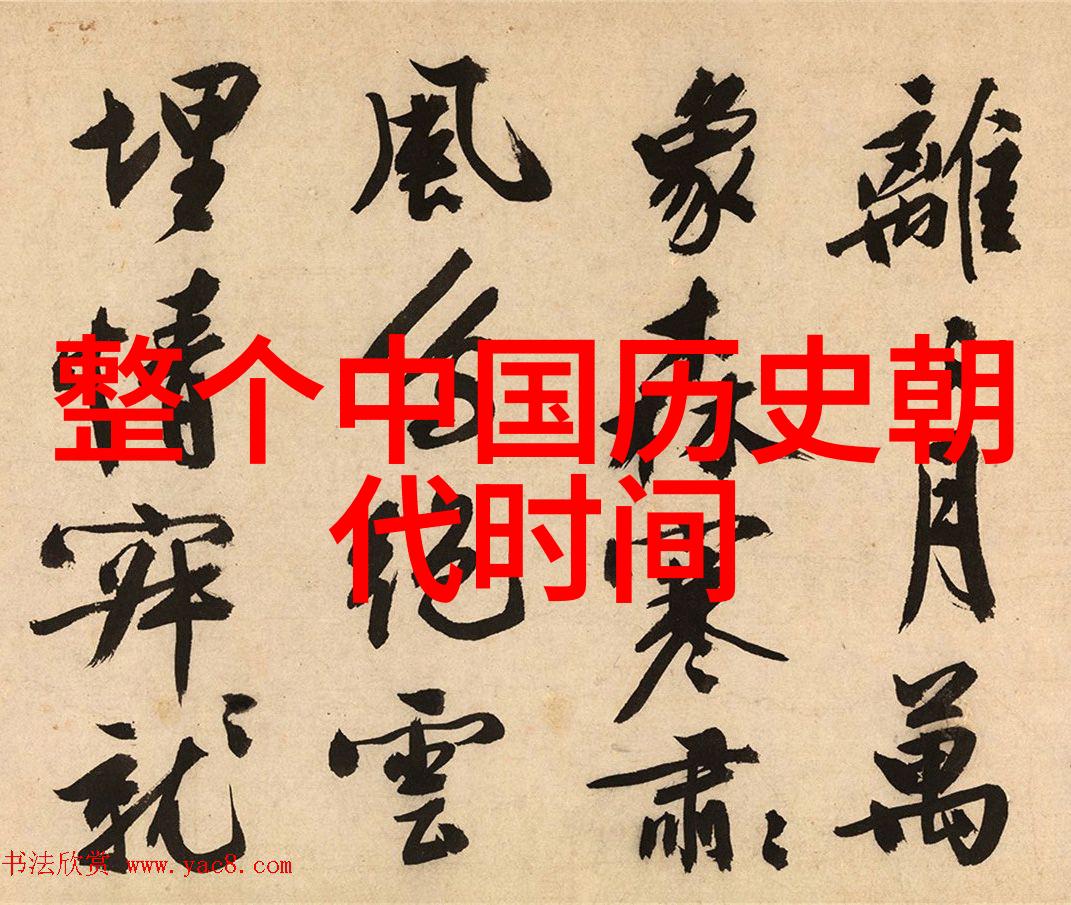 整个中国历史朝
代时间
離月萬
象森寒肅
風絕雲
埋穽就
书法欣赏 www.yac8.com